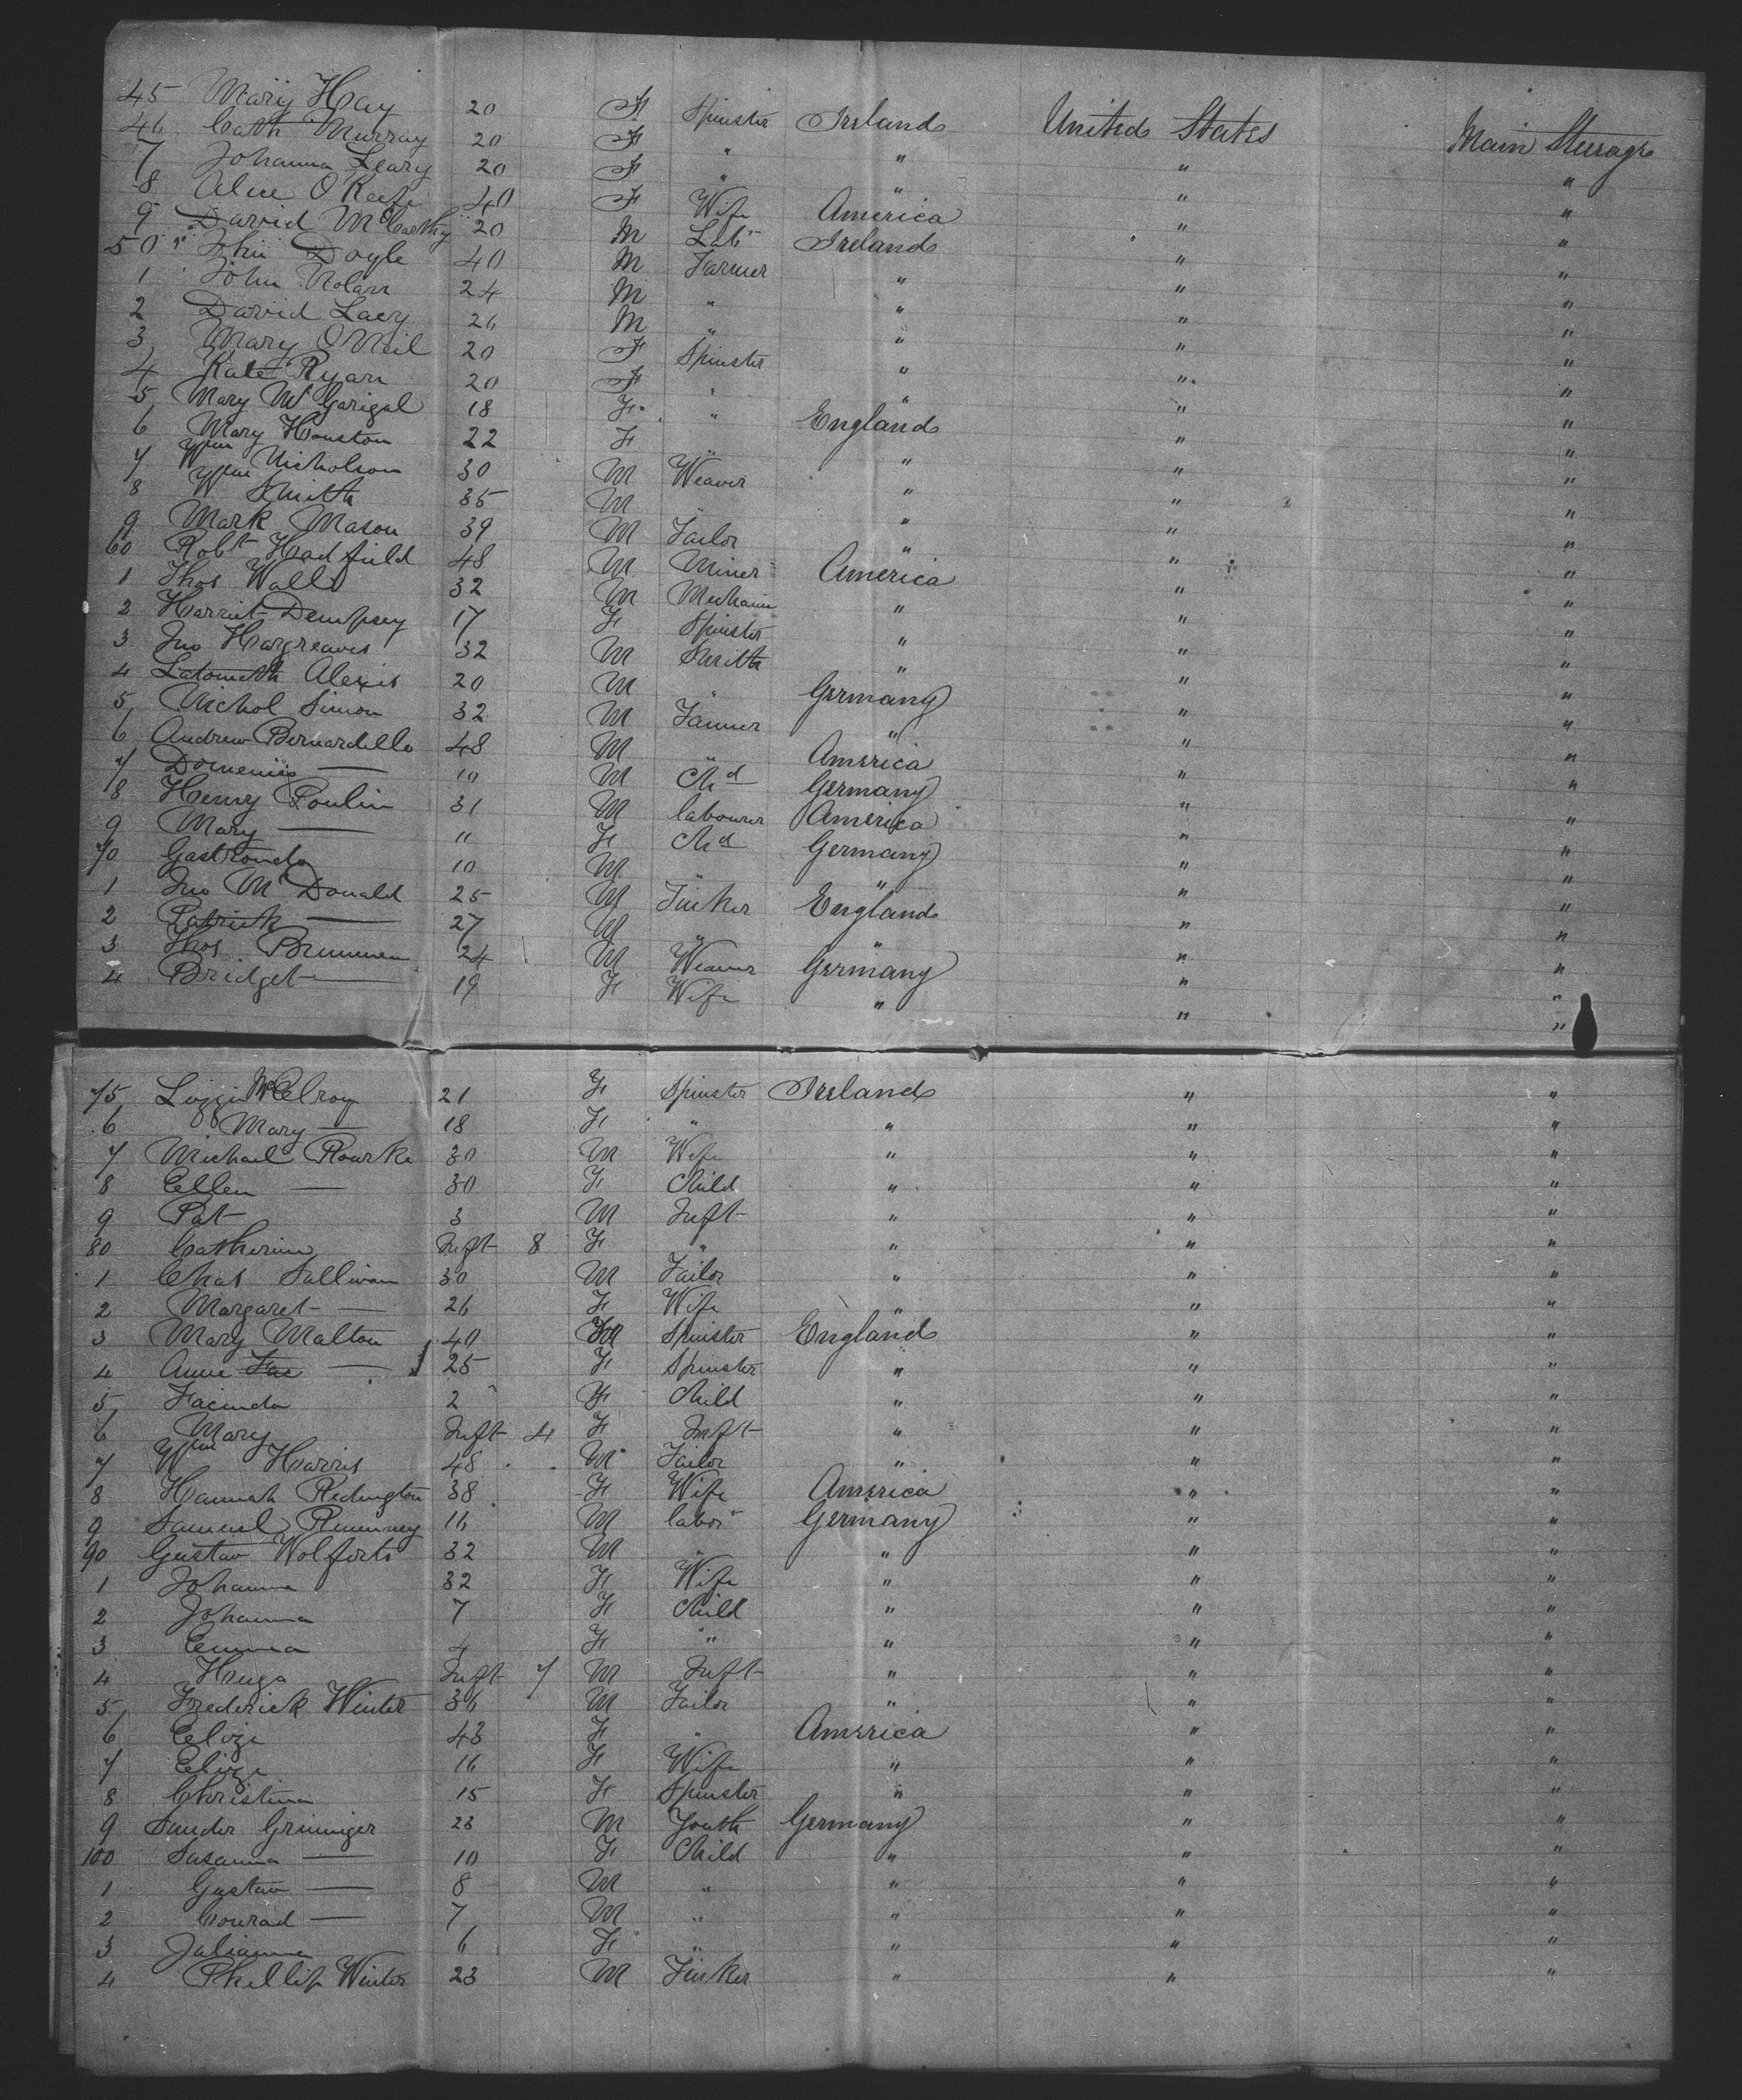 45 Mary Hay 20 F Spinster Ireland United States Main Steerage
46 Cath Murray 20 F " " " "
7 Johanna Leary 20 F " " " "
8 Alice O'Keefe 40 F Wife America " "
9 David McCarthy 20 M Labr Ireland " "
50 John Doyle 40 M Farmer " " "
1 John Nolan 24 M " " " "
2 David Lacy 26 M " " " "
3 Mary O'Neil 20 F Spinster " " "
4 Kate Ryan 20 F " " " "
5 Mary McGarigal 18 F " England " "
6 Mary Houston 22 F " " " "
7 Wm Nicholson 30 M Weaver " " "
8 Wm Smith 35 M " " " "
9 Mark Mason 39 M Tailor " " "
60 Robt Hadfield 48 M Miner America " "
1 Thos Walls 32 M Mechanic " " "
2 Harriet Dempsey 17 F Spinster " " "
3 Jno Hargreaves 32 M Smith " " "
4 Alexis 20 M " Germany " "
5 Nichol Simon 32 M Farmer " " "
6 Andrew Bernardello 48 M " America " "
7 — 10 M Chd Germany " "
8 Henry Poulin 31 M labourer America " "
9 Mary — 11 F Chd Germany " "
70 10 M " " " "
1 Jno McDonald 25 M Tinker England " "
2 Patrick — 27 M " " " "
3 Thos 24 M Weaver Germany " "
4 Bridget — 19 F Wife " " "
75 Lizzie McElroy 21 F Spinster Ireland " "
6 Mary — 18 F " " " "
7 Michael Rourke 30 M Wife " " "
8 Ellen — 30 F Child " " "
9 Pat 3 M Inft " " "
80 Catherine Inft 8 F " " " "
1 Chas Sullivan 30 M Tailor " " "
2 Margaret — 26 F Wife " " "
3 Mary Malton 40 F Spinster England " "
4 Anne — 25 F Spinster " " "
5 Facinda 2 F Child " " "
6 Mary Inft 4 F Inft " " "
7 Wm Harris 48 M Tailor " " "
8 Hannah Redington 38 F Wife America " "
9 Samuel 16 M labor Germany " "
90 Gustav 32 M " " " "
1 Johanna 32 F Wife " " "
2 Johanna 7 F Child " " "
3 Emma 4 F " " " "
4 Huga Inft 7 M Inft " " "
5 Frederick Winter 36 M Tailor " " "
6 43 F " America " "
7 16 F Wife " " "
8 Christina 15 F Spinster " " "
9 Sander Grininger 23 M Youth Germany " "
100 Susanna — 10 F Child " " "
1 Gustav — 8 M " " " "
2 Conrad — 7 M " " " "
3 Julianna 6 F " " " "
4 Phillip Winter 23 M Tinker " " "